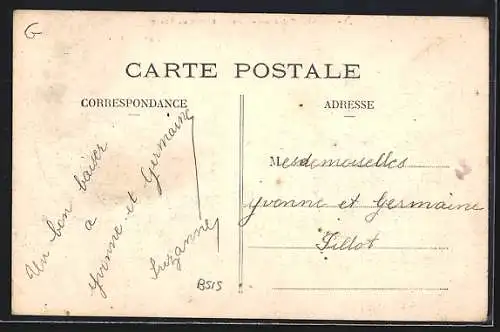 G
CARTE POSTALE
CORRESPONDANCE
Un bon baiser
a
Yvonne et Germaine
Suzanne
B515
ADRESSE
Mesdemoiselles
Yvonne et Germaine
Tillot